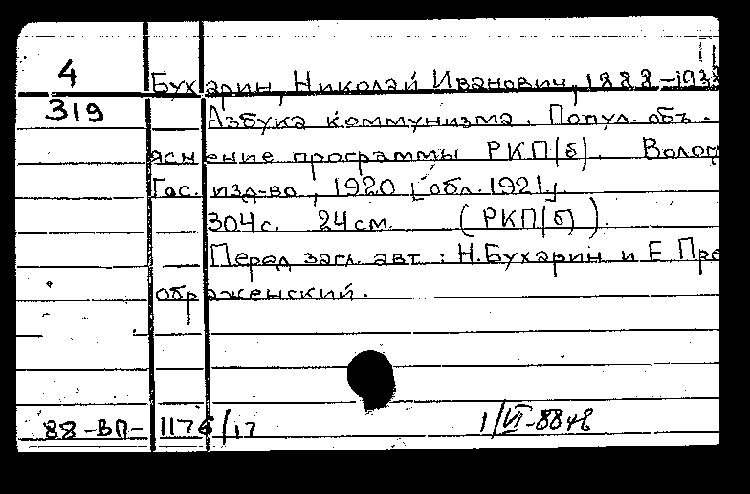 4
Бухарин, Николай Иванович, 1888-1938
319
Азбука коммунизма. Попул. объ-
яснение программы РКП(б). Волог
Гос. изд-во, 1920 [обл. 1921].
304 с. 24 см. (РКП(б)).
Перед загл. авт.: Н. Бухарин и Е. Пре
ображенский.
88-ВП-1176/17
1/VI-88